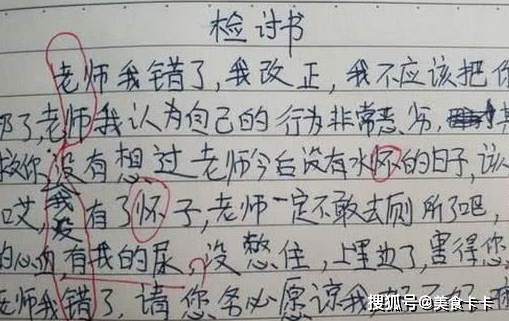 检讨书
老师我错了,我改正,我不应该把你
了,老师我认为自己的行为非常恶劣,其
你没有想过老师今后没有水怀的日子,该
哎,我爱有了怀子,老师一定不敢去厕所了吧,
的心血有我的尿,没憋住,上里边了,害得您
老师我错了,请您务必原谅我
搜狐号@美食卡卡